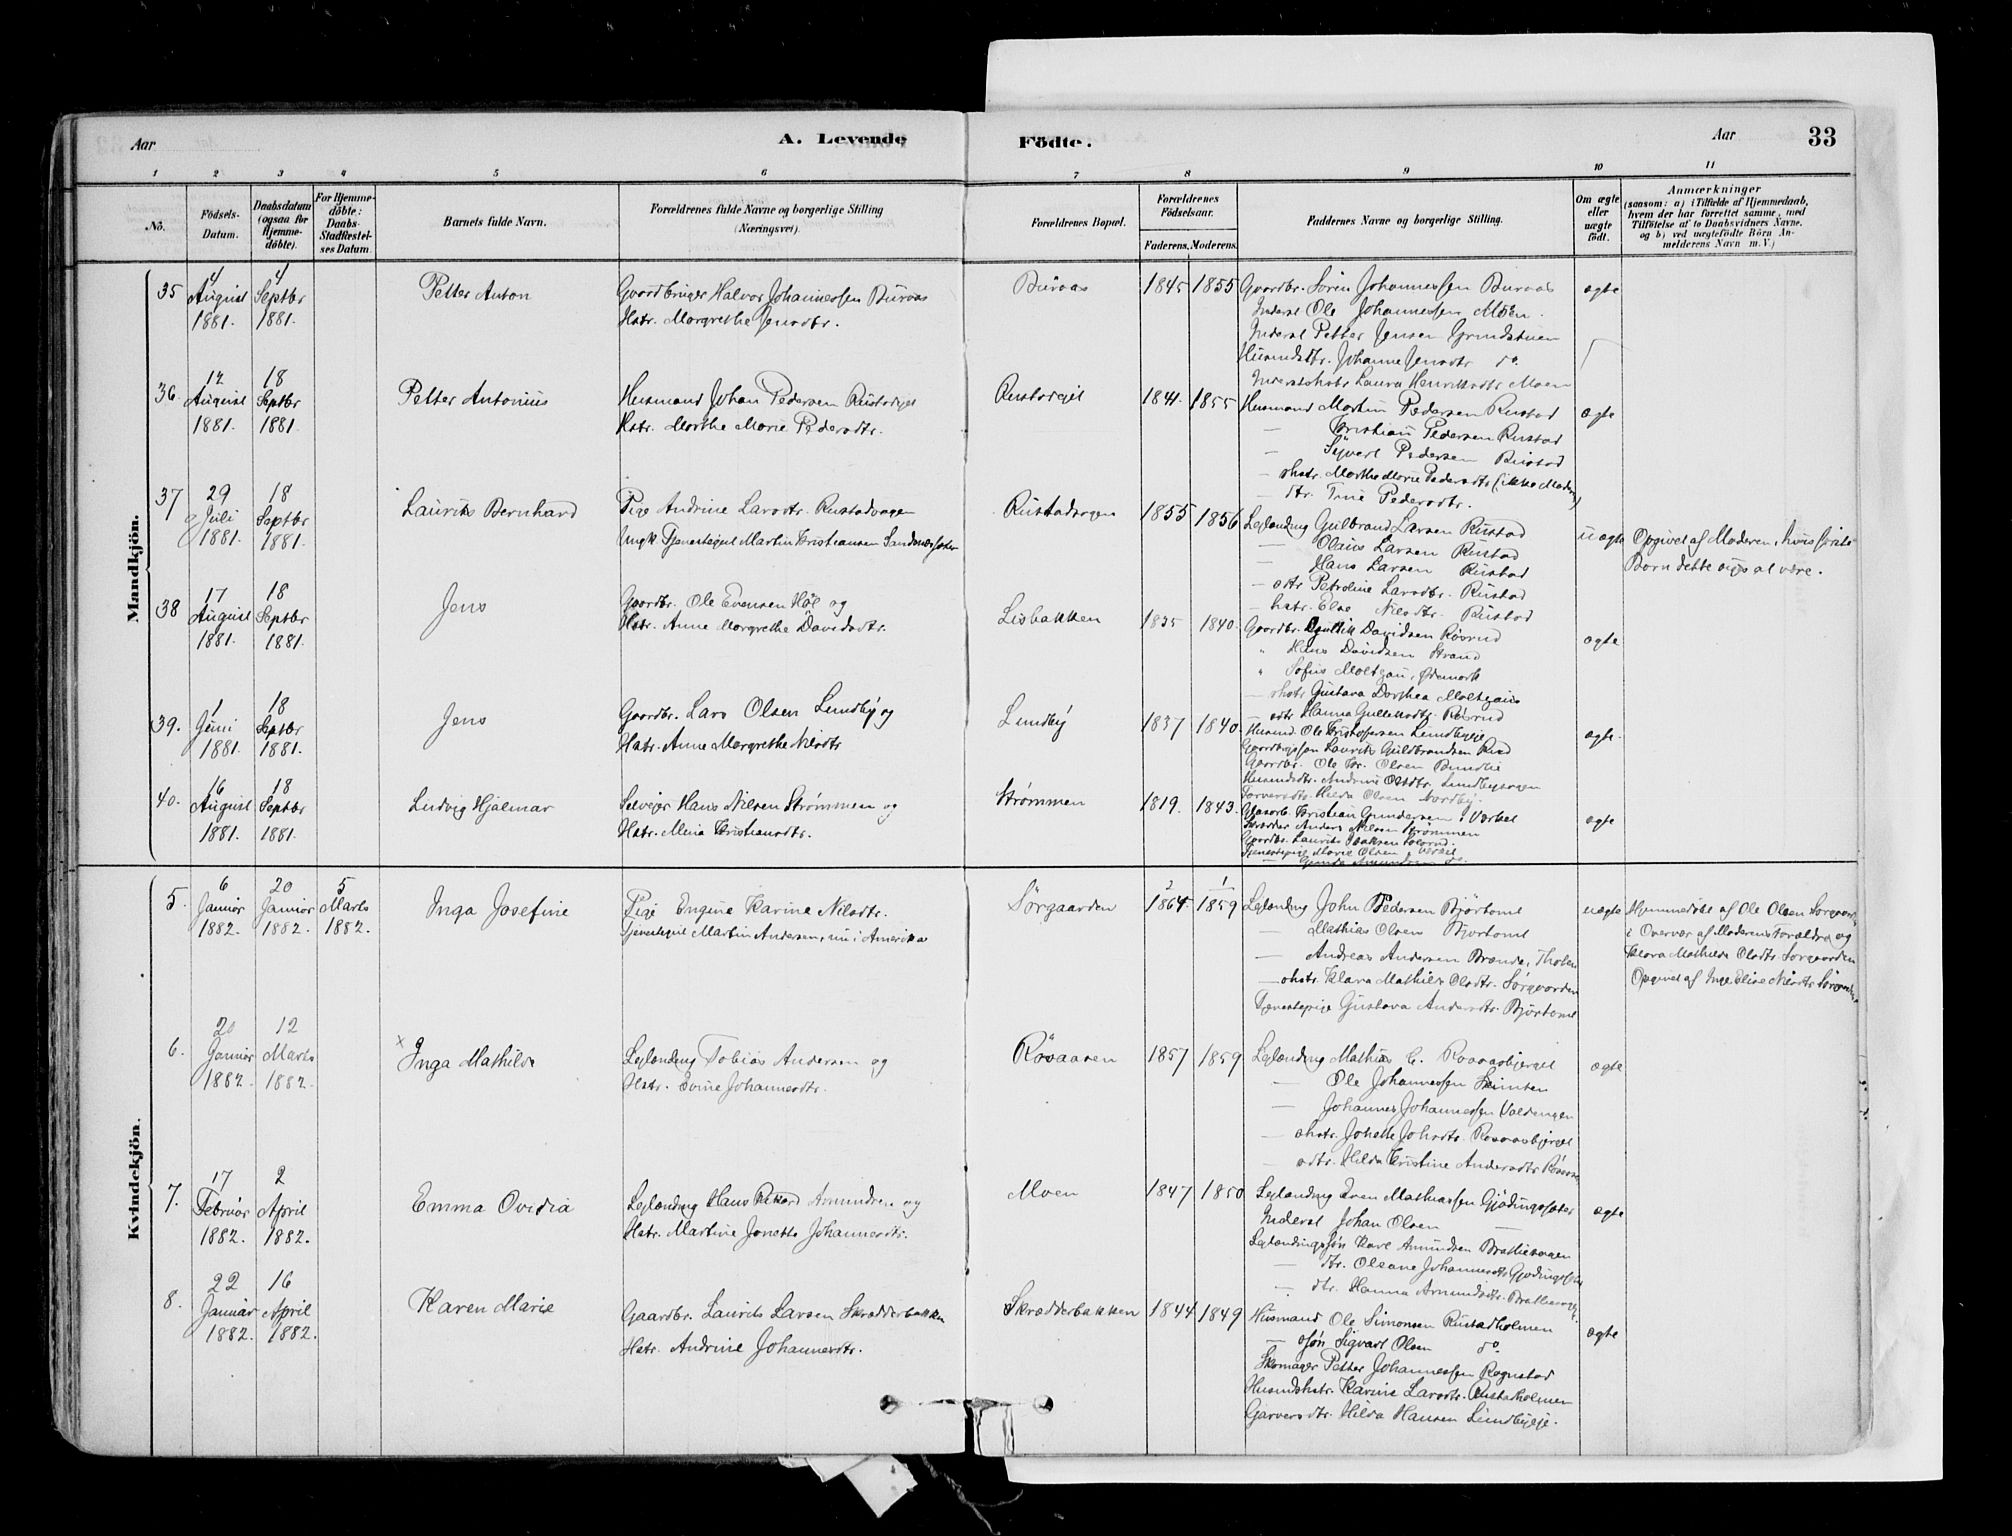 Aar
A. Levende
Födte.
Aar
33
1 2 3 4 5 6 7 8 9 10 11
No.
Födsels-Datum.
Daabsdatum (ogsaa for Hjemme-döbte).
For Hjemme-döbte: Daabs-Stadfæstel-ses Datum.
Barnets fulde Navn.
Forældrenes fulde Navne og borgerlige Stilling (Næringsvei).
Forældrenes Bopæl.
Forældrenes Födselsaar.
Faderens. Moderens.
Faddernes Navne og borgerlige Stilling.
Om ægte eller uægte födt.
Anmærkninger
(saasom: a) i Tilfælde af Hjemmedaab,
hvem der har forrettet samme, med
Tilföielse af to Daabsvidners Navne.
og b) ved uægtefödte Börn An-
melderens Navn m. V.)
Mandkjön.
35 4 August 1881. 4 Septbr 1881.
Petter Anton
Gaardbruger Halvor Johannessen Buraas
Hstr. Margrethe Jensdtr.
Buraas
1845 1855
Gaardbr. Sören Johannessen Buraas
Inderst Ole Johannessen Moen.
Inderst Petter Jensen Grindstuen
Husmdsdtr. Johanne Jensdtr do.
Inderstshstr Laura Henriksdtr Moen
ægte
36. 12 August 1881. 18 Septbr 1881.
Petter Antonius
Husmand Johan Pedersen Rustadeiet
Hstr. Marthe Marie Pedersdtr.
Rustadeiet
1841. 1855
Husmand Martin Pedersen Rustad
— Kristian Pedersen Rustad
— Syvert Pedersen Rustad
— shstr. Marthe Marie Pedersdtr (ikke Moderen)
— dtr. Trine Pedersdtr.
ægte
37 29 Juli 1881. 18 Septbr 1881.
Laurits Bernhard
Pige Andrine Larsdtr. Rustadvagen
Ungk. Tjenestegut Martin Kristiansen Sandnessæter
Rustadvagen
1855 1856
Leilænding Gulbrand Larsen Rustad
— Olaus Larsen Rustad
— Hans Larsen Rustad
— dtr Petroline Larsdtr. Rustad
— hstr. Else Nilsdtr. Rustad
uægte
Opgivet af Moderen, hvis förste
Barn dette siges at være.
38 17 August 1881. 18 Septbr 1881.
Jens
Gaardbr. Ole Evensen Höl og
Hstr. Anne Margrethe Davidsdtr.
Lisbakken
1835 1840.
Gaardbr. Gullik Davidsen Rösrud
" Hans Davidsen Strand
" Sofus Moltzau, Ödemark
— shstr Gustava Dorthea Moltzaus
— dtr Hanna Gulliksdtr. Rösrud
ægte
39. 1 Juni 1881. 18 Septbr 1881.
Jens
Gaardbr. Lars Olsen Lundby og
Hstr. Anne Margrethe Nilsdtr
Lundby
1837 1840.
Husmd. Ole Kristoffersen Lundbyeje
Gaardbrgssön Laurits Guldbrandsen Rud
Gaardbr. Ole Kr. Olsen Bundlie
Husmdsdtr. Andrine Olsdtr. Lundbyvagen
Garversdtr. Hilda Olsen Nordby.
ægte.
40. 16 August 1881. 18 Septbr 1881.
Ludvig Hjalmar
Selveier Hans Nilsen Strömmen og
Hstr. Mina Kristiansdtr.
Strömmen
1819. 1843.
Kristian Gundersen i Værket
Skrædder Anders Nilsen Strömmen
Gaardbr. Laurits Isaksen
Tjenestepige Marie Olsen i Værket
— Amundsen do.
ægte
Kvindekjön.
5. 6 Januar 1882. 20 Januar 1882. 5 Marts 1882.
Inga Josefine
Pige Engine Karine Nilsdtr.
Tjenestegut Martin Andersen, nu i Amerika
Sörgaarden
2 1864. 1 1859
Leilænding John Pedersen Björtomt
— Mathias Olsen Bjortomt
— Andreas Andersen Brænde, Tholen
— shstr Klara Mathilde Olsdtr. Sörgaarden
Tjenestepige Gustava Andersdtr. Björtomt
uægte
Hjemmedöbt af Ole Olsen Sörgaarden
i Overvær af Moderens Forældre og
Klara Mathilde Olsdtr. Sörgaarden
Opgivet af Inge Elise Nilsdtr Sörgaarden
6. 20 Januar 1882. 12 Marts 1882.
× Inga Mathilde
Leilænding Tobias Andersen og
Hstr. Johannesdtr.
Röaasen
1857 1859
Leilænding Mathias C. Roaasbjerget
— Ole Johannessen
— Johannes Johannessen
— shstr. Johette Johsdtr. Roaasbjerget
— sdtr. Hilda Kristine Andersdtr Röaasen
ægte
7. 17 Februar 1882. 2 April 1882.
Emma Ovidia
Leilænding Hans Rikard Amundsen og
Hstr. Martine Jonette Johannesdtr.
Moen
1847 1850
Leilænding Even Mathiassen Gjödingsæter
Inderst Johan Olsen —
Leilændingssön Karl Amundsen Bratlievagen
— dtr. Oleane Johannesdtr Gjödingsæter
— dtr. Hanna Amundsdtr. Bratlievagen
ægte
8. 22 Januar 1882. 16 April 1882.
Karen Marie
Gaardbr. Laurits Larsen Skrædderbakken
Hstr. Andrine Johannesdtr.
Skrædderbakken
1844 1849
Husmand Ole Simonsen Rustadholmen
— ssön Sigvart Olsen do.
Skomager Petter Johannessen Rognstad
Husmdshstr. Karine Larsdtr. Rustadholmen
Garversdtr. Hilda Hansen Lundbyeje.
ægte